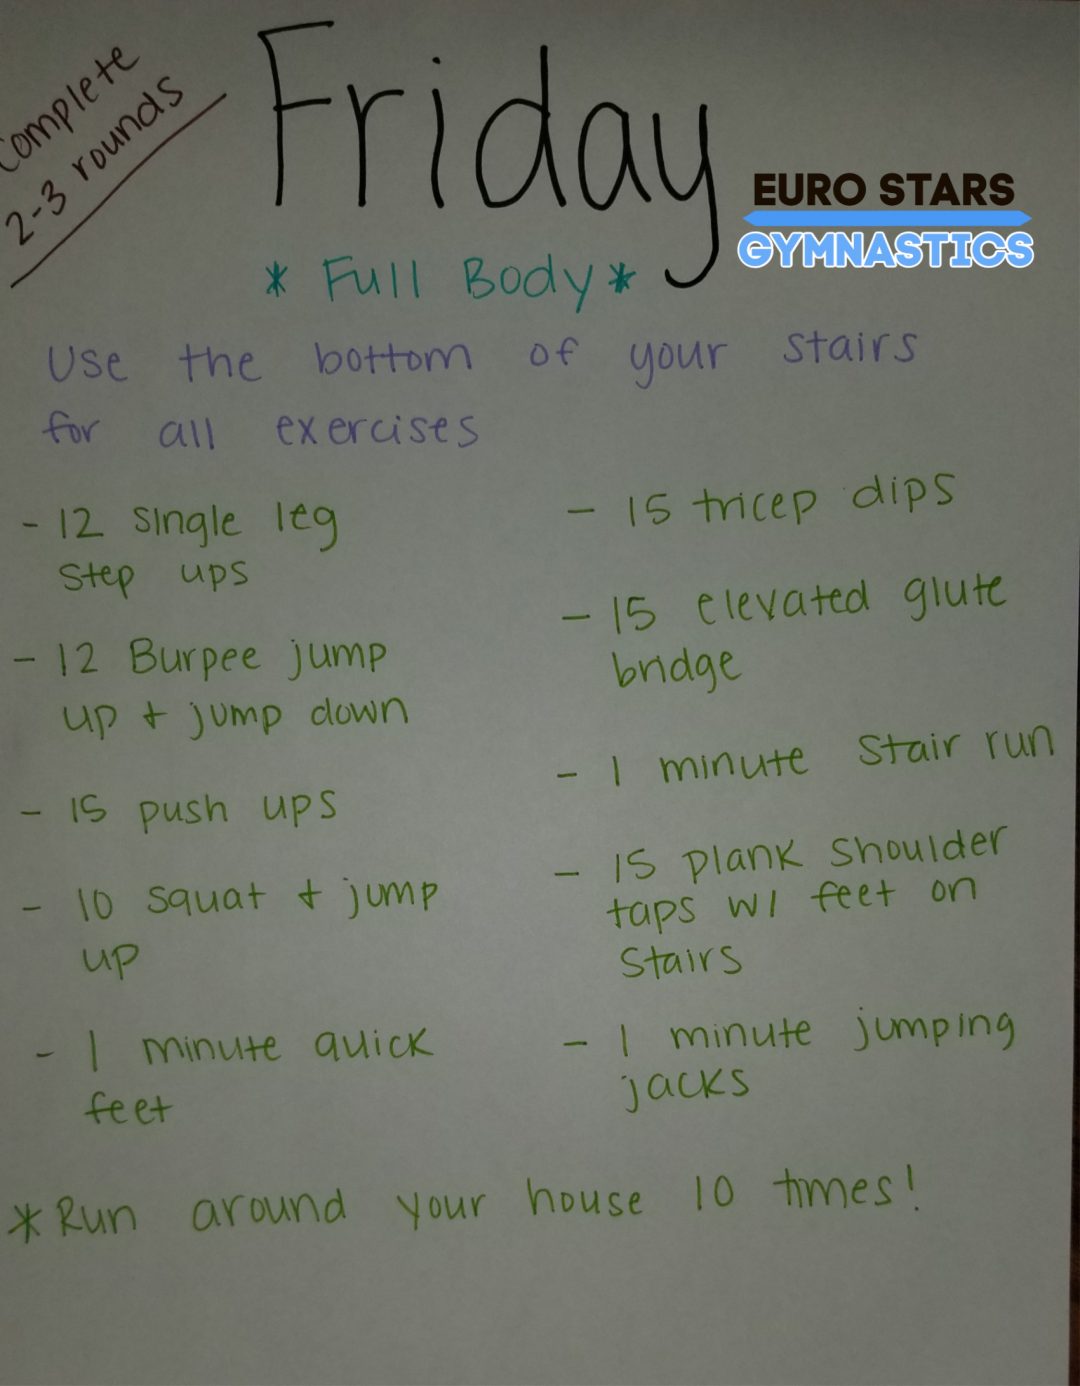 Complete
2-3 rounds
Friday
EURO STARS
GYMNASTICS
* Full Body *
Use the bottom of your stairs
for all exercises
- 12 single leg
step ups
- 12 Burpee jump
up + jump down
- 15 push ups
- 10 squat + jump
up
- 1 minute quick
feet
- 15 tricep dips
- 15 elevated glute
bridge
- 1 minute stair run
- 15 plank shoulder
taps w/ feet on
stairs
- 1 minute jumping
jacks
* Run around your house 10 times!